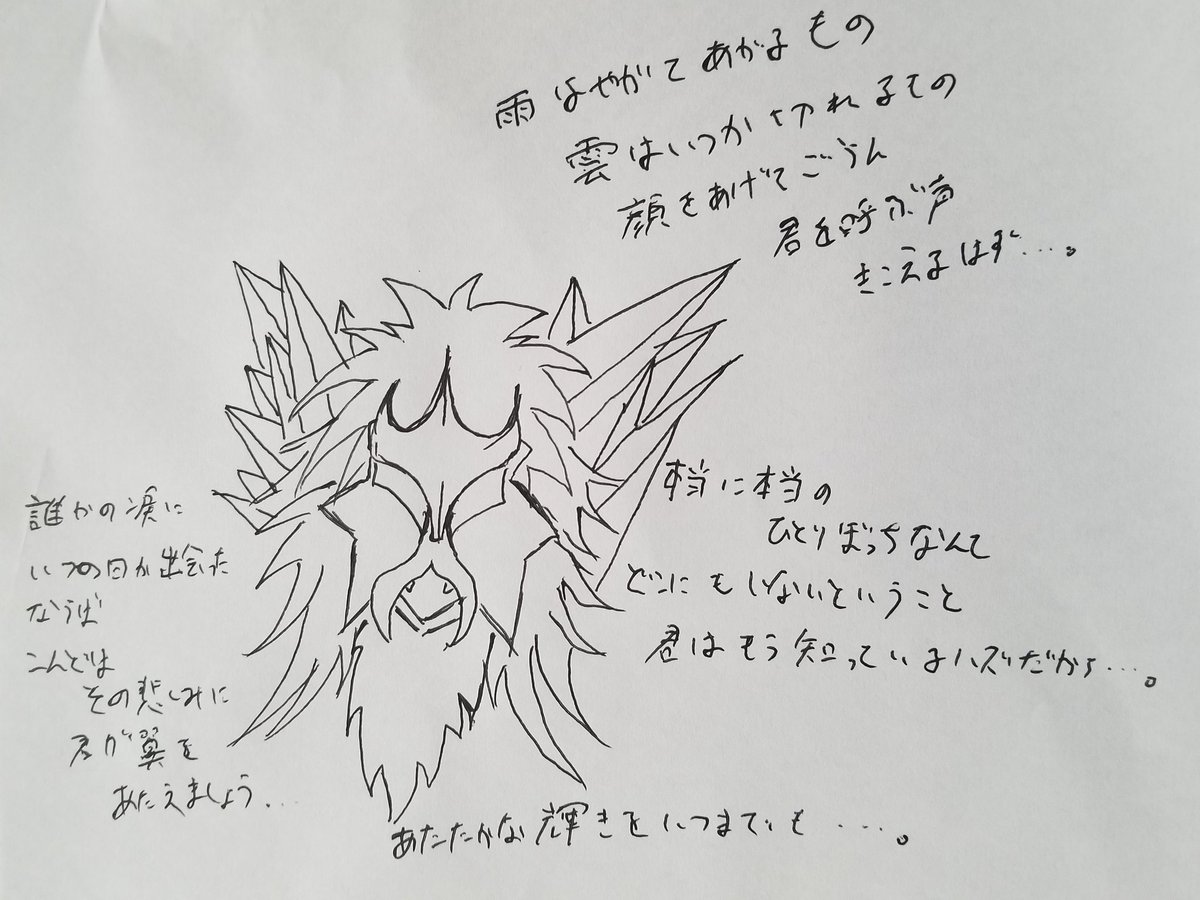 雨はやがてあがるもの
雲はいつか切れるもの
顔をあげてごらん
君を呼ぶ声
きこえるはず….。
本当に本当の
ひとりぼっちなんて
どこにもいないということ
君はもう知っているハズだから….。
誰かの涙に
いつの日か出会た
ならば
こんどは
その悲しみに
君が翼を
あたえましょう....
あたたかな輝きをいつまでも….。